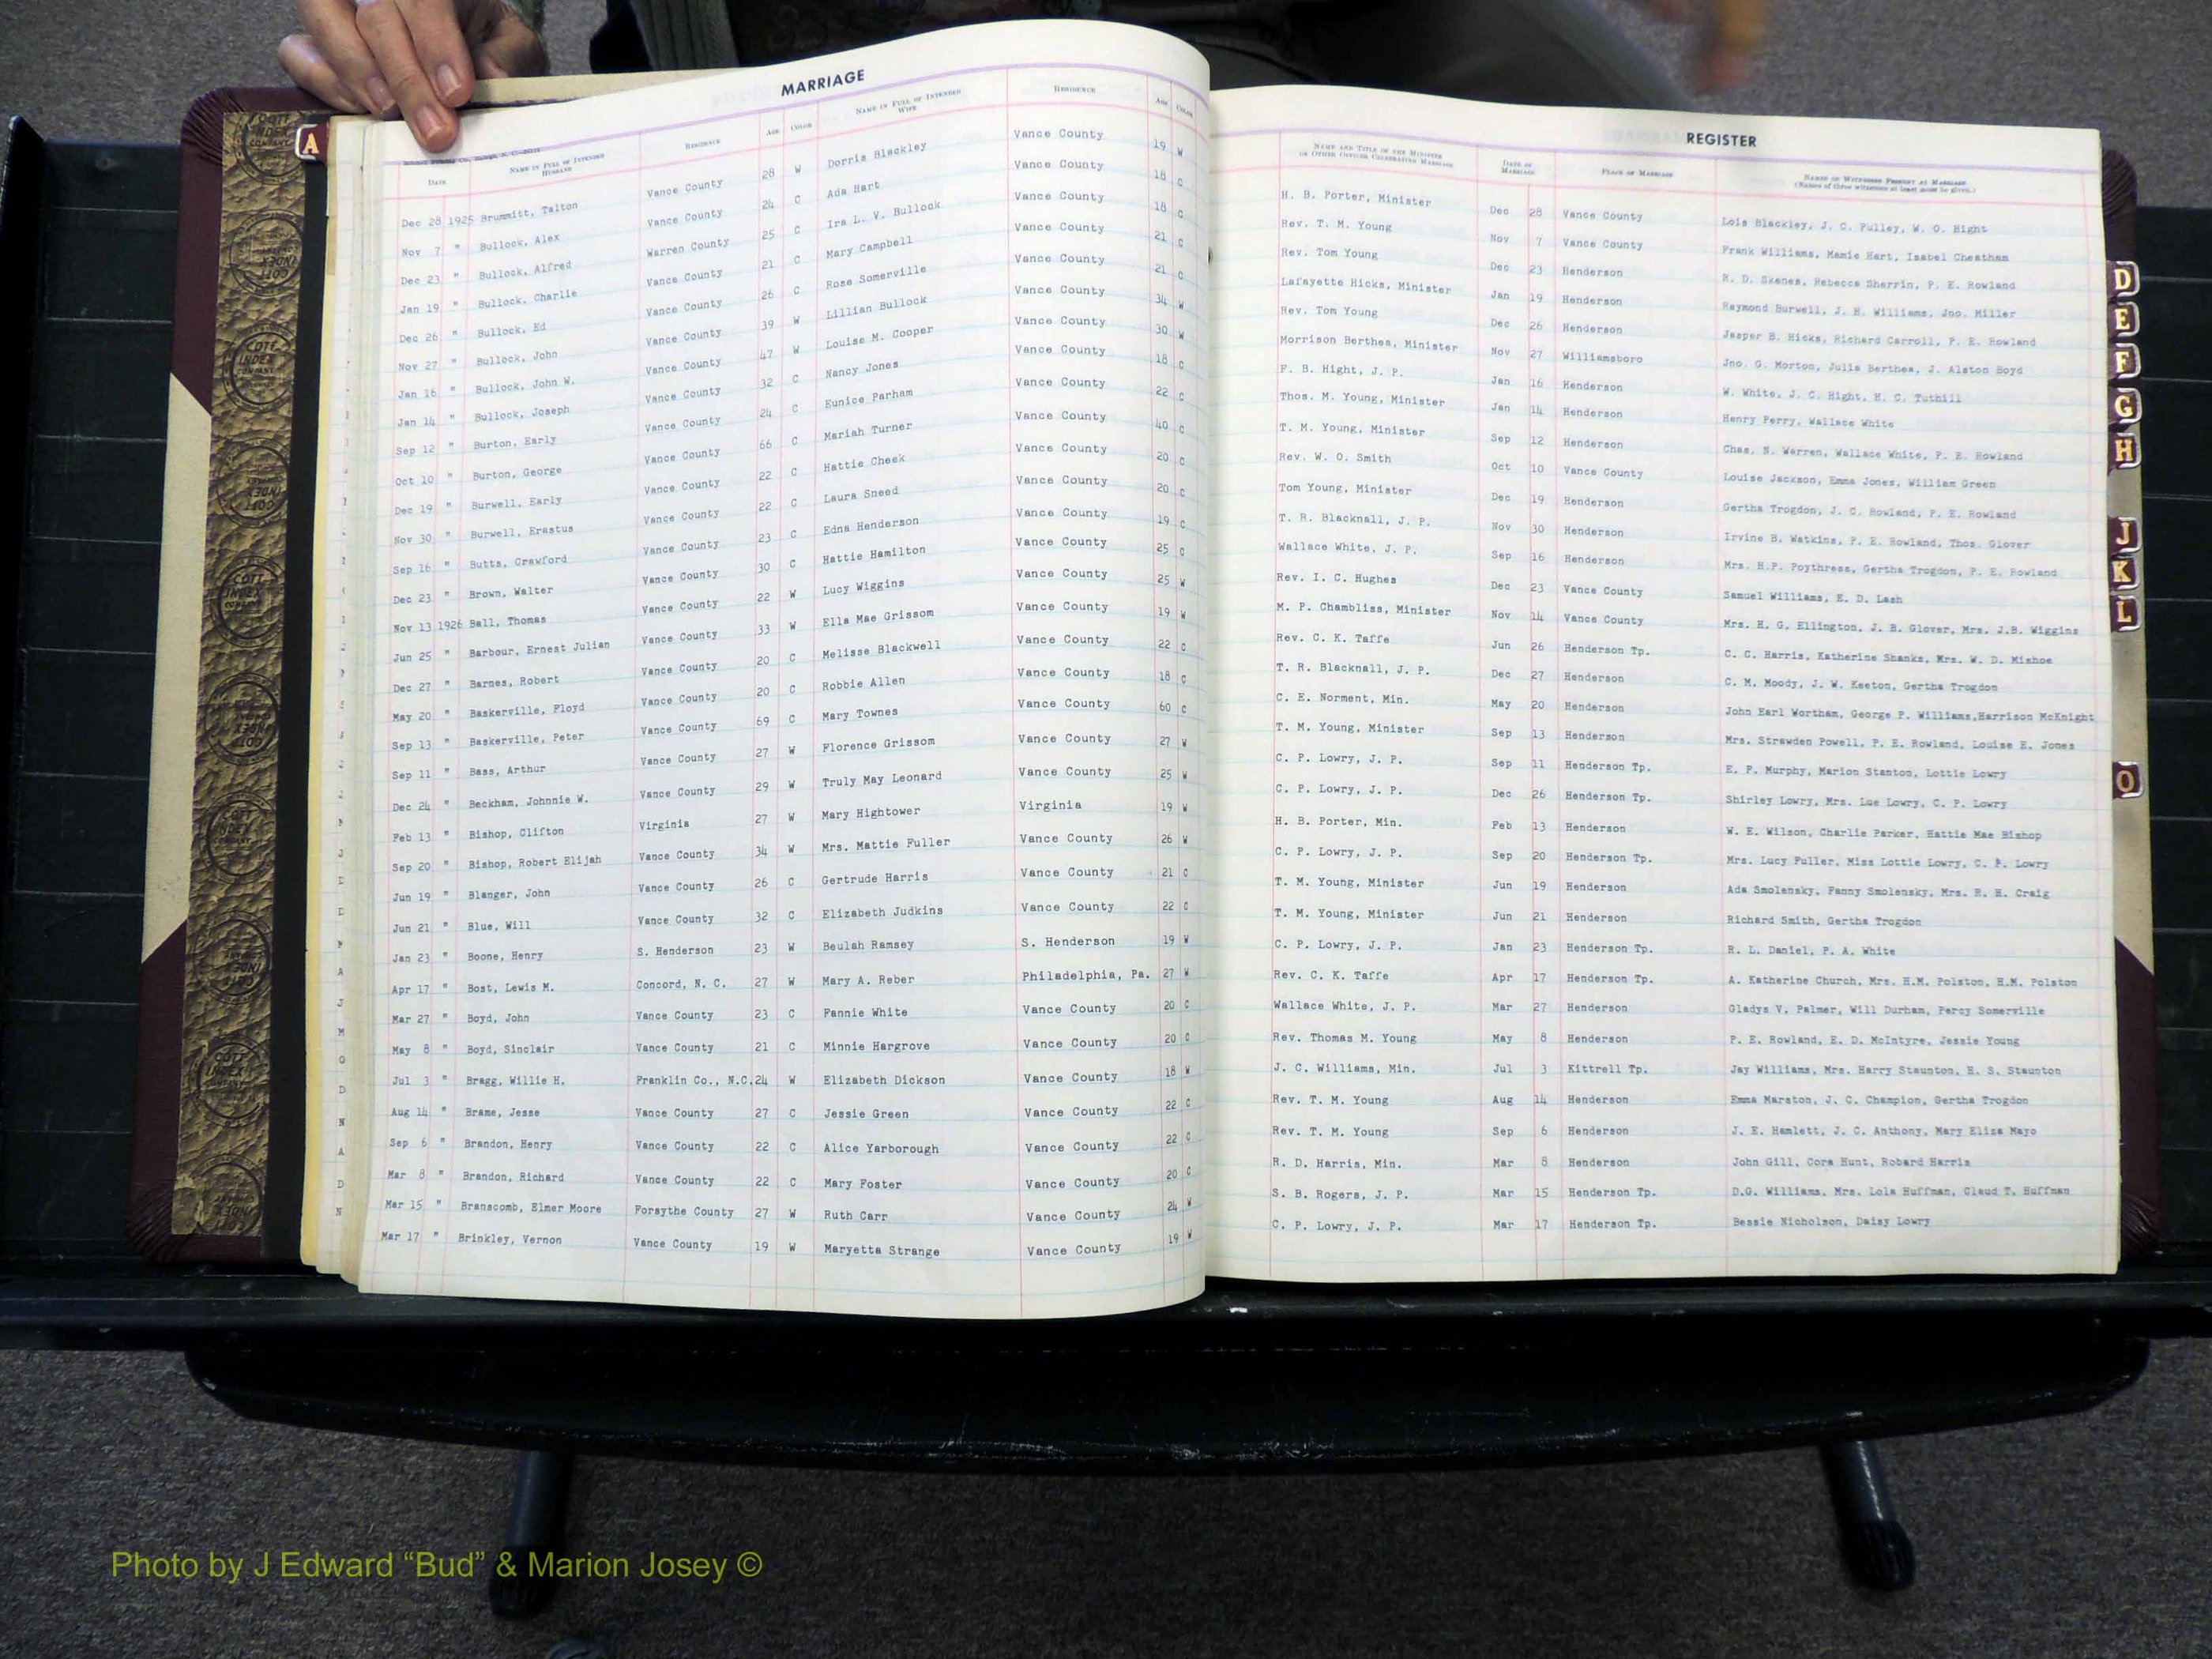 MARRIAGE
REGISTER
DATE NAME IN FULL OF INTENDED HUSBAND RESIDENCE AGE COLOR NAME IN FULL OF INTENDED WIFE RESIDENCE AGE COLOR NAME AND TITLE OF THE MINISTER OR OTHER OFFICER CELEBRATING MARRIAGE DATE OF MARRIAGE PLACE OF MARRIAGE NAMES OF WITNESSES PRESENT AT MARRIAGE (Names of three witnesses at least must be given.)
Dec 28 1925 Brummitt, Talton Vance County 28 W Dorris Blackley Vance County 19 W H. B. Porter, Minister Dec 28 Vance County Lois Blackley, J. C. Pulley, W. O. Hight
Nov 7 " Bullock, Alex Vance County 24 C Ada Hart Vance County 18 C Rev. T. M. Young Nov 7 Vance County Frank Williams, Mamie Hart, Isabel Cheatham
Dec 23 " Bullock, Alfred Warren County 25 C Ira L. V. Bullock Vance County 18 C Rev. Tom Young Dec 23 Henderson R. D. Skenes, Rebecca Sherrin, P. E. Rowland
Jan 19 " Bullock, Charlie Vance County 21 C Mary Campbell Vance County 21 C Lafayette Hicks, Minister Jan 19 Henderson Raymond Burwell, J. H. Williams, Jno. Miller
Dec 26 " Bullock, Ed Vance County 26 C Rose Somerville Vance County 21 C Rev. Tom Young Dec 26 Henderson Jasper B. Hicks, Richard Carroll, P. E. Rowland
Nov 27 " Bullock, John Vance County 39 W Lillian Bullock Vance County 34 W Morrison Berthea, Minister Nov 27 Williamsboro Jno. G. Morton, Julia Berthea, J. Alston Boyd
Jan 16 " Bullock, John W. Vance County 47 W Louise M. Cooper Vance County 30 W F. B. Hight, J. P. Jan 16 Henderson W. White, J. C. Hight, H. C. Tuthill
Jan 14 " Bullock, Joseph Vance County 32 C Nancy Jones Vance County 18 C Thos. M. Young, Minister Jan 14 Henderson Henry Perry, Wallace White
Sep 12 " Burton, Early Vance County 24 C Eunice Parham Vance County 22 C T. M. Young, Minister Sep 12 Henderson Chas. N. Warren, Wallace White, P. E. Rowland
Oct 10 " Burton, George Vance County 66 C Mariah Turner Vance County 40 C Rev. W. O. Smith Oct 10 Vance County Louise Jackson, Emma Jones, William Green
Dec 19 " Burwell, Early Vance County 22 C Hattie Cheek Vance County 20 C Tom Young, Minister Dec 19 Henderson Gertha Trogdon, J. C. Rowland, P. E. Rowland
Nov 30 " Burwell, Erastus Vance County 22 C Laura Sneed Vance County 20 C T. R. Blacknall, J. P. Nov 30 Henderson Irvine B. Watkins, P. E. Rowland, Thos. Glover
Sep 16 " Butts, Crawford Vance County 23 C Edna Henderson Vance County 19 C Wallace White, J. P. Sep 16 Henderson Mrs. H.P. Poythress, Gertha Trogdon, P. E. Rowland
Dec 23 " Brown, Walter Vance County 30 C Hattie Hamilton Vance County 25 C Rev. I. C. Hughes Dec 23 Vance County Samuel Williams, E. D. Lash
Nov 13 1926 Ball, Thomas Vance County 22 W Lucy Wiggins Vance County 25 W M. P. Chambliss, Minister Nov 14 Vance County Mrs. H. G. Ellington, J. B. Glover, Mrs. J.B. Wiggins
Jun 25 " Barbour, Ernest Julian Vance County 33 W Ella Mae Grissom Vance County 19 W Rev. C. K. Taffe Jun 26 Henderson Tp. C. C. Harris, Katherine Shanks, Mrs. W. D. Mishoe
Dec 27 " Barnes, Robert Vance County 20 C Melisse Blackwell Vance County 22 C T. R. Blacknall, J. P. Dec 27 Henderson C. M. Moody, J. W. Keeton, Gertha Trogdon
May 20 " Baskerville, Ployd Vance County 20 C Robbie Allen Vance County 18 C C. E. Norment, Min. May 20 Henderson John Earl Wortham, George P. Williams,Harrison McKnight
Sep 13 " Baskerville, Peter Vance County 69 C Mary Townes Vance County 60 C T. M. Young, Minister Sep 13 Henderson Mrs. Strawden Powell, P. E. Rowland, Louise E. Jones
Sep 11 " Bass, Arthur Vance County 27 W Florence Grissom Vance County 27 W C. P. Lowry, J. P. Sep 11 Henderson Tp. E. F. Murphy, Marion Stanton, Lottie Lowry
Dec 24 " Beckham, Johnnie W. Vance County 29 W Truly May Leonard Vance County 25 W C. P. Lowry, J. P. Dec 26 Henderson Tp. Shirley Lowry, Mrs. Lue Lowry, C. P. Lowry
Feb 13 " Bishop, Clifton Virginia 27 W Mary Hightower Virginia 19 W H. B. Porter, Min. Feb 13 Henderson W. E. Wilson, Charlie Parker, Hattie Mae Bishop
Sep 20 " Bishop, Robert Elijah Vance County 34 W Mrs. Mattie Fuller Vance County 26 W C. P. Lowry, J. P. Sep 20 Henderson Tp. Mrs. Lucy Fuller, Miss Lottie Lowry, C. P. Lowry
Jun 19 " Blanger, John Vance County 26 C Gertrude Harris Vance County 21 C T. M. Young, Minister Jun 19 Henderson Ada Smolensky, Fanny Smolensky, Mrs. R. H. Craig
Jun 21 " Blue, Will Vance County 32 C Elizabeth Judkins Vance County 22 C T. M. Young, Minister Jun 21 Henderson Richard Smith, Gertha Trogdon
Jan 23 " Boone, Henry S. Henderson 23 W Beulah Ramsey S. Henderson 19 W C. P. Lowry, J. P. Jan 23 Henderson Tp. R. L. Daniel, P. A. White
Apr 17 " Bost, Lewis M. Concord, N. C. 27 W Mary A. Reber Philadelphia, Pa. 27 W Rev. C. K. Taffe Apr 17 Henderson Tp. A. Katherine Church, Mrs. H.M. Polston, H.M. Polston
Mar 27 " Boyd, John Vance County 23 C Fannie White Vance County 20 C Wallace White, J. P. Mar 27 Henderson Gladys V. Palmer, Will Durham, Percy Somerville
May 8 " Boyd, Sinclair Vance County 21 C Minnie Hargrove Vance County 20 C Rev. Thomas M. Young May 8 Henderson P. E. Rowland, E. D. McIntyre, Jessie Young
Jul 3 " Bragg, Willie H. Franklin Co., N.C. 24 W Elizabeth Dickson Vance County 18 W J. C. Williams, Min. Jul 3 Kittrell Tp. Jay Williams, Mrs. Harry Staunton, H. S. Staunton
Aug 14 " Brame, Jesse Vance County 27 C Jessie Green Vance County 22 C Rev. T. M. Young Aug 14 Henderson Emma Marston, J. C. Champion, Gertha Trogdon
Sep 6 " Brandon, Henry Vance County 22 C Alice Yarborough Vance County 22 C Rev. T. M. Young Sep 6 Henderson J. E. Hamlett, J. C. Anthony, Mary Eliza Mayo
Mar 8 " Brandon, Richard Vance County 22 C Mary Foster Vance County 20 C R. D. Harris, Min. Mar 8 Henderson John Gill, Cora Hunt, Robard Harris
Mar 15 " Branscomb, Elmer Moore Forsythe County 27 W Ruth Carr Vance County 24 W S. B. Rogers, J. P. Mar 15 Henderson Tp. D.G. Williams, Mrs. Lola Huffman, Claud T. Huffman
Mar 17 " Brinkley, Vernon Vance County 19 W Maryetta Strange Vance County 19 W C. P. Lowry, J. P. Mar 17 Henderson Tp. Bessie Nicholson, Daisy Lowry
A
D
E
F
G
H
J
K
L
O
COTT INDEX COMPANY
Photo by J Edward “Bud” & Marion Josey ©